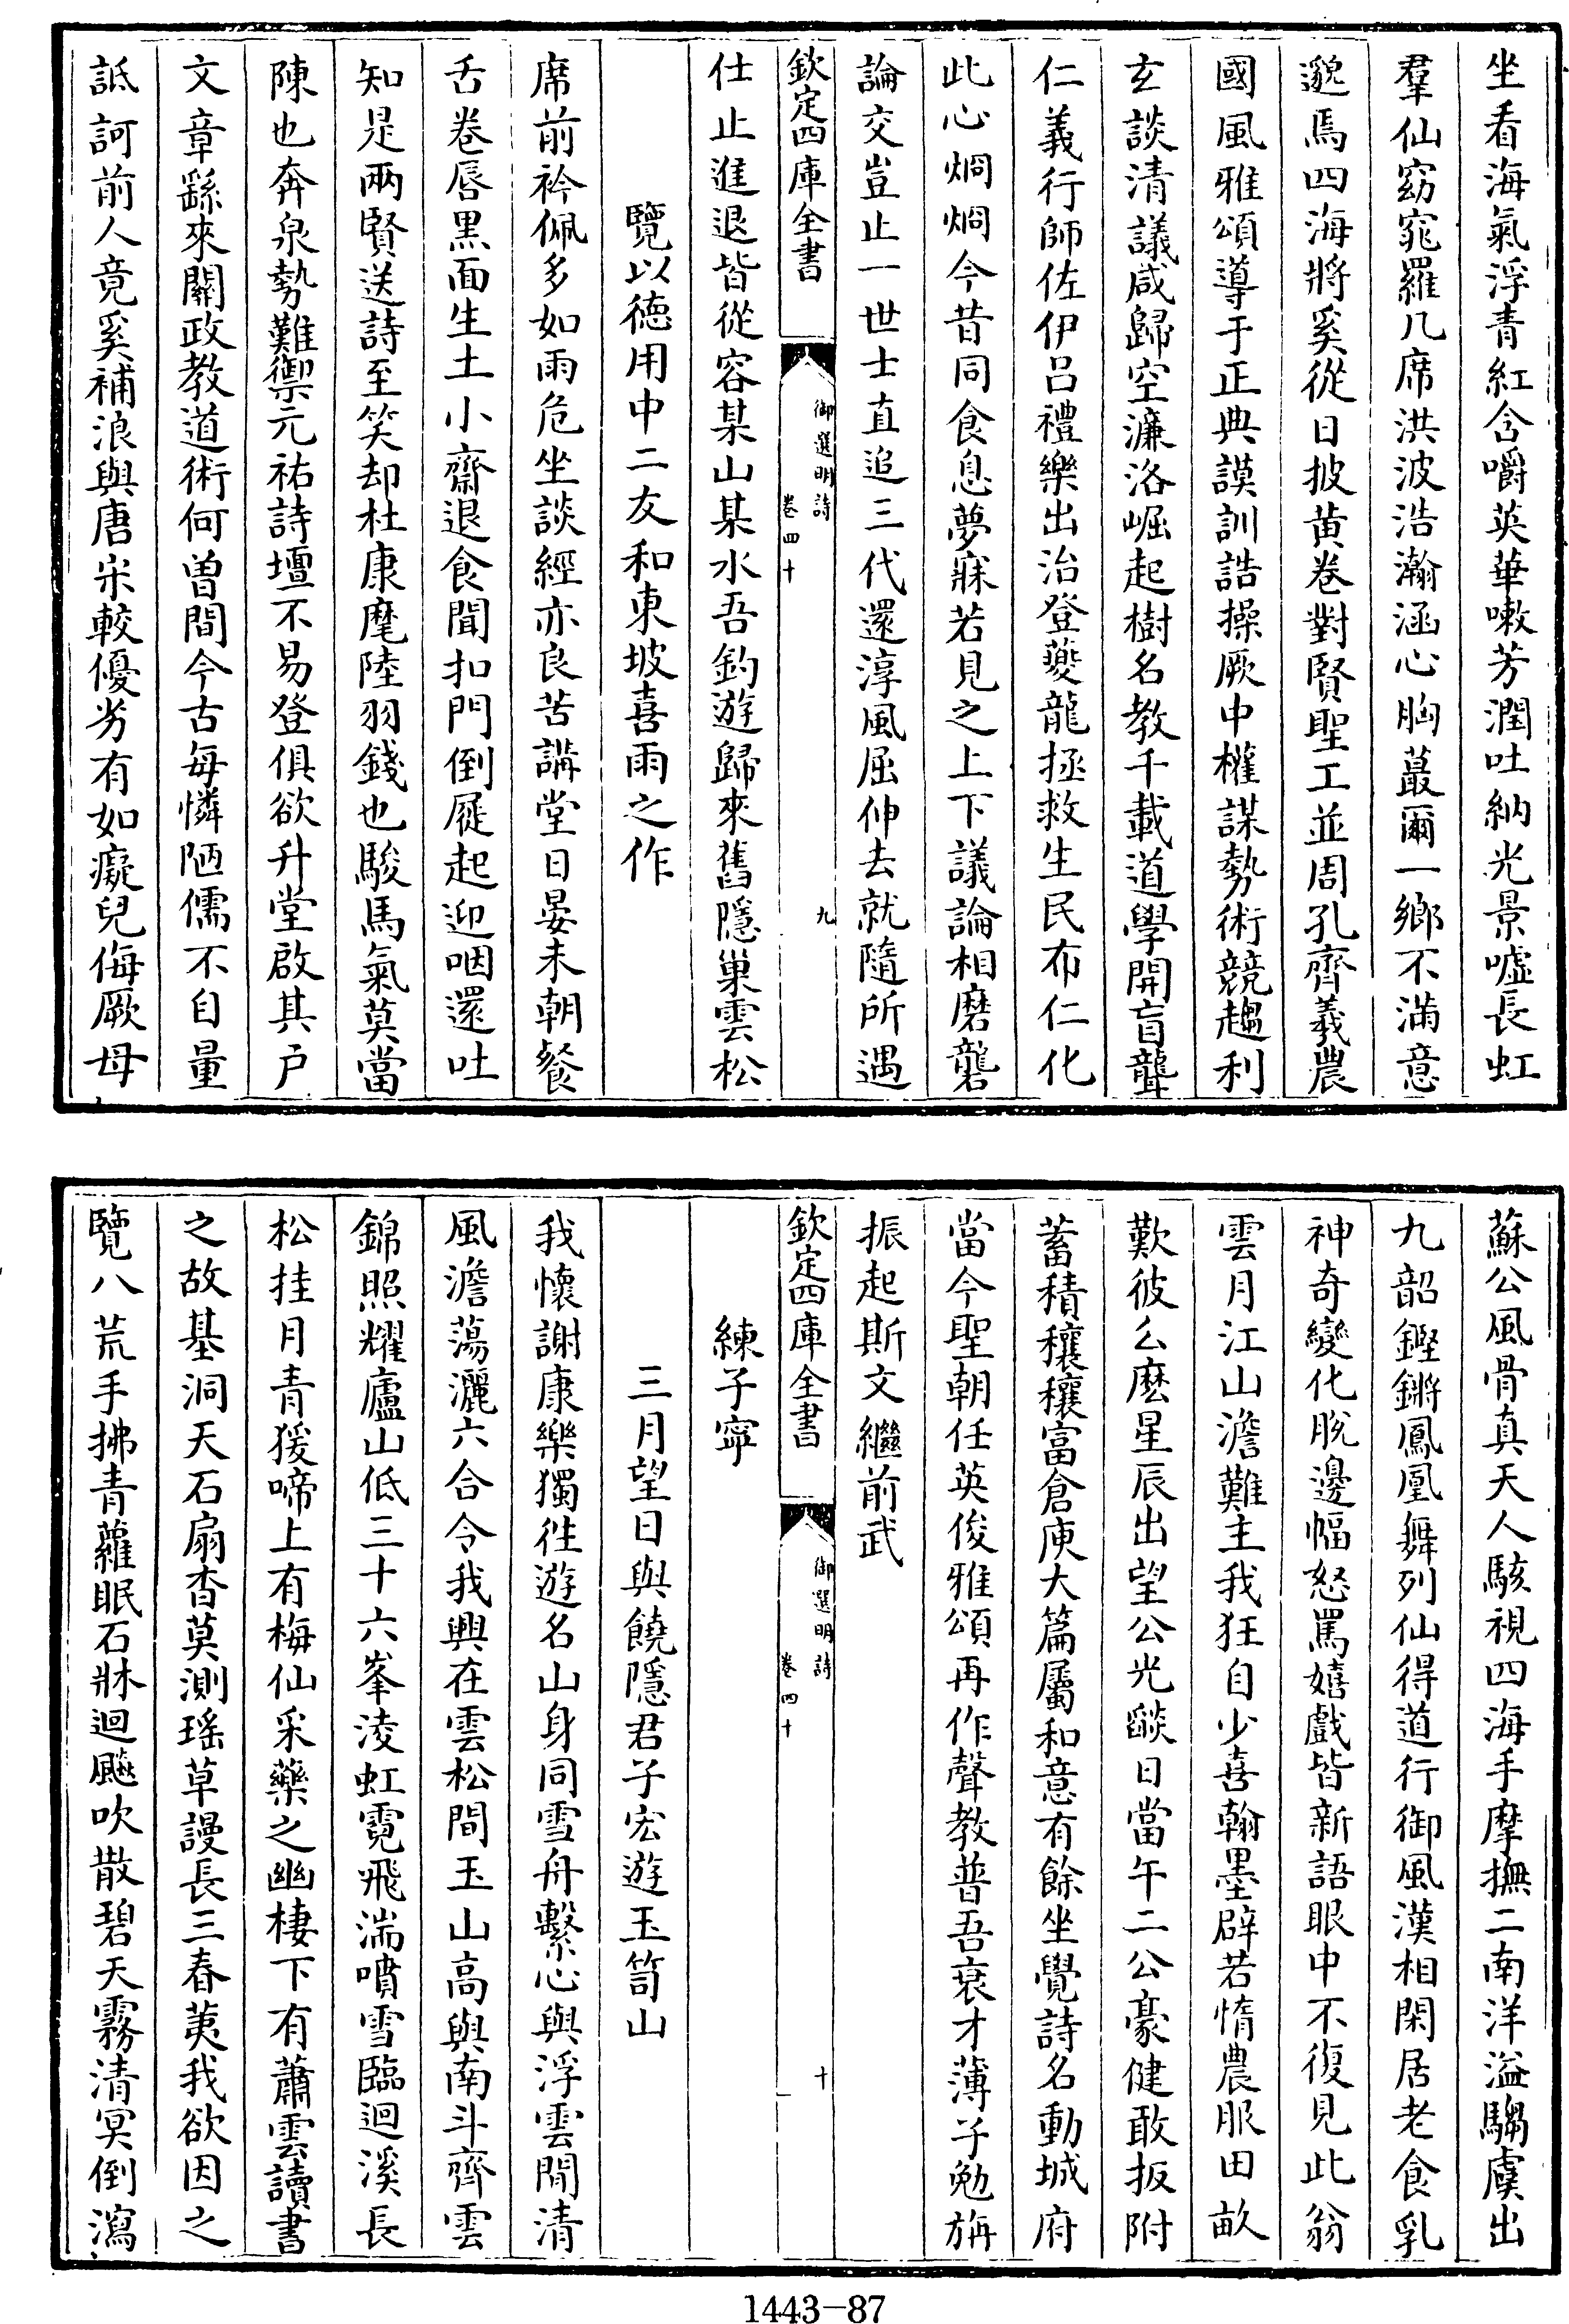 坐看海氣浮青紅含嚼英華嗽芳潤吐納光景噓長虹
羣仙窈窕羅几席洪波浩瀚涵心胸蕞爾一鄉不滿意
邈焉四海將奚從日披黄卷對賢聖工並周孔齊羲農
國風雅頌導于正典謨訓誥操厥中權謀勢術競趨利
玄談清議咸歸空濂洛崛起樹名教千載道學開盲聾
仁義行師佐伊吕禮樂出治登夔龍拯救生民布仁化
此心烱烱今昔同食息夢寐若見之上下議論相磨礱
論交豈止一世士直追三代還淳風屈伸去就隨所遇
欽定四庫全書
御選明詩
卷四十
九
仕止進退皆從容某山某水吾釣遊歸來舊隱巢雲松
覽以德用中二友和東坡喜雨之作
席前衿佩多如雨危坐談經亦良苦講堂日晏未朝餐
舌卷唇黑面生土小齋退食聞扣門倒屣起迎咽還吐
知是兩賢送詩至笑却杜康麾陸羽錢也駿馬氣莫當
陳也奔泉勢難禦元祐詩壇不易登俱欲升堂啟其户
文章繇來關政教道術何曽間今古每憐陋儒不自量
詆訶前人竟奚補浪與唐宋較優劣有如癡兒侮厥母
蘇公風骨真天人駭視四海手摩撫二南洋溢騶虞出
九韶鏗鏘鳳凰舞列仙得道行御風漢相閑居老食乳
神奇變化脱邊幅怒罵嬉戲皆新語眼中不復見此翁
雲月江山澹難主我狂自少喜翰墨辟若惰農服田畝
歎彼么麽星辰出望公光燄日當午二公豪健敢扳附
蓄積穰穰富倉庾大篇屬和意有餘坐覺詩名動城府
當今聖朝任英俊雅頌再作聲教普吾衰才薄子勉旃
振起斯文繼前武
欽定四庫全書
御選明詩
卷四十
十
練子寧
三月望日與饒隱君子宏遊玉笥山
我懷謝康樂獨徃遊名山身同雪舟繫心與浮雲閒清
風澹蕩灑六合令我興在雲松間玉山高與南斗齊雲
錦照耀廬山低三十六峯淩虹霓飛湍噴雪臨迴溪長
松挂月青猨啼上有梅仙采藥之幽棲下有蕭雲讀書
之故基洞天石扇杳莫測瑶草謾長三春荑我欲因之
覽八荒手拂青蘿眠石牀迴飈吹散碧天霧清冥倒瀉
1443-87